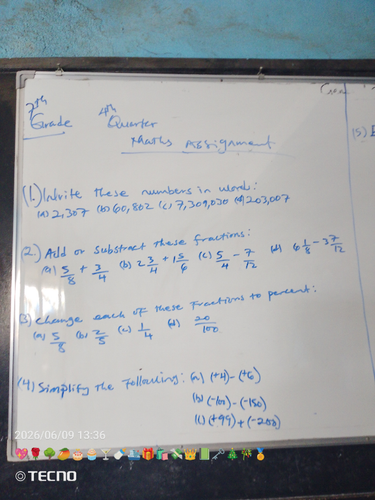 7th Grade 4th Quarter
Maths Assignment
(1.) Write these numbers in word:
(a) 2,307 (b) 60,802 (c) 7,309,030 (d) 203,007
(2.) Add or Substract these fractions:
(a) 5/8 + 3/4 (b) 2 3/4 + 1 5/6 (c) 5/4 - 7/12 (d) 6 1/8 - 3 7/12
(3) change each of these fractions to percent:
(a) 5/8 (b) 2/5 (c) 1/4 (d) 20/100
(4) Simplify the Following: (a) (+4) - (+6)
(b) (-101) - (-150)
(c) (+99) + (-200)
(5)
2026/06/09 13:36
TECNO